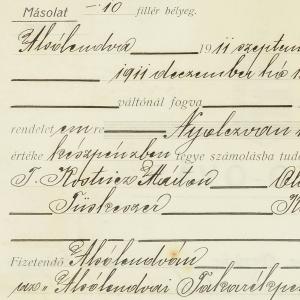 Másolat — 10 fillér bélyeg.
Alsólendva 1911 szeptem
1911 deczember hó 1
váltónál fogva
rendelet em re Nyolczvan
értéke készpénzben tegye számolásba tud
T. Kostricz Márton
Tüskeszer
Fizetendő Alsólendván
az „Alsólendvai Takarékpén